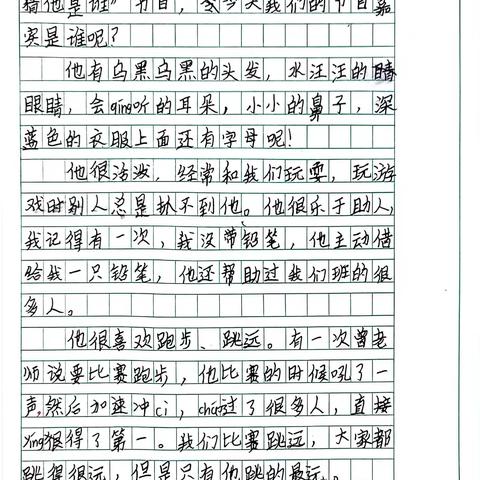 猜他是谁》节目，我今天我们的节目嘉
实是谁呢？
他有乌黑乌黑的头发，水汪汪的睛
眼睛，会qing听的耳朵，小小的鼻子，深
蓝色的衣服上面还有字母呢！
他很活泼，经常和我们玩耍，玩游
戏时别人总是扒不到他。他很乐于助人，
我记得有一次，我没带铅笔，他主动借
给我一只铅笔，他还帮助过我们班的很
多人。
他很喜欢跑步、跳远。有一次曾老
师说要比赛跑步，他比赛的时候吼了一
声，然后加速冲ci，chāo过了很多人，直接
ying很得了第一。我们比赛跳远，大家都
跳得很远，但是只有他跳的最远。